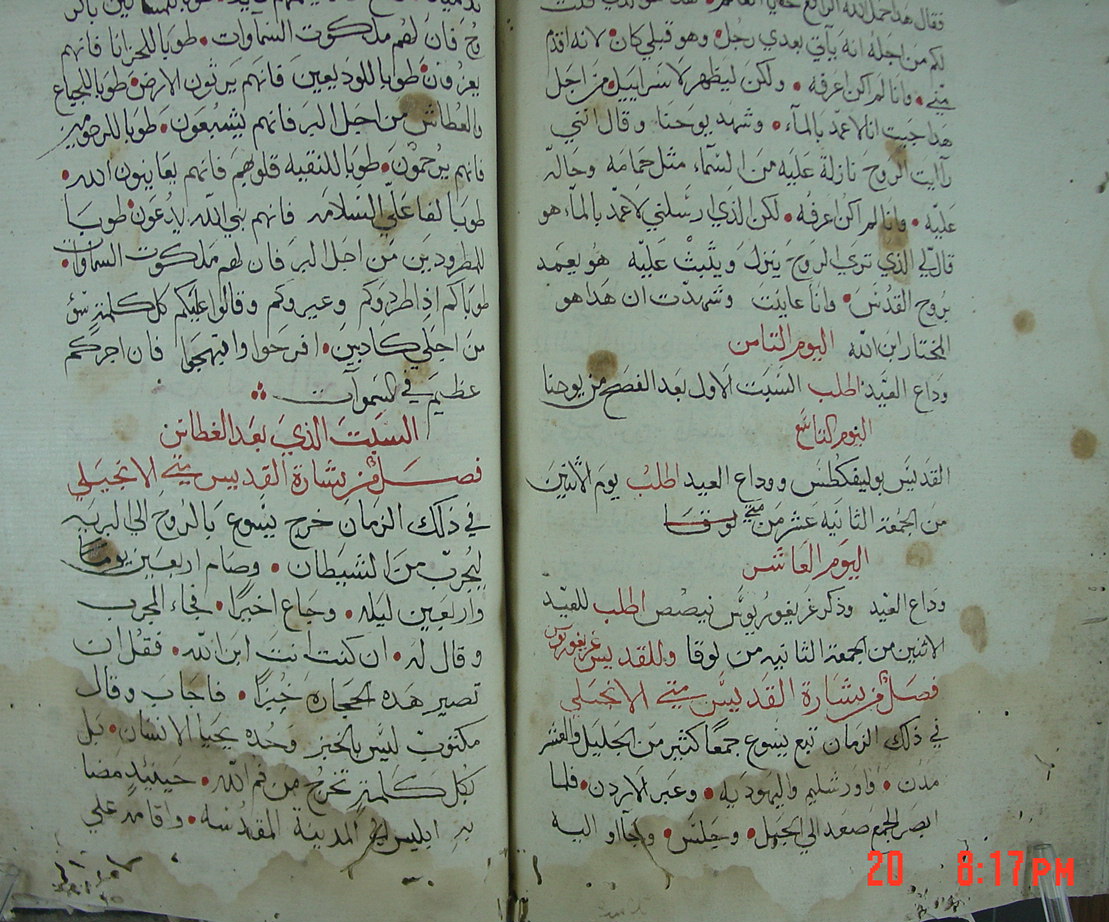 فقال هدا حمل الله الرافع
لكم من اجله انه ياتي بعدي رجل • وهو قبلي كان • لانه اقدم
مني • وانا لم اكن اعرفه • ولكن ليظهر لاسراييل • من اجل
هدا جيت انا لاعمد بالمآء • وشهد يوحنا وقال انني
رأيت الروح نازلة عليه من السمآء مثل حمامه وحالّه
عليه • وانا لم اكن اعرفه • لكن الذي ارسلني لاعمد بالمآء هو
قال لي الذي تري الروح ينزل ويثبت عليه هو يعمد
بروح القدس • وانا عاينت وشهدت ان هدا هو
المختار ابن الله اليوم الثامن
وداع العيد اطلب السبت الاول بعد الفصح من يوحنا
اليوم التاسع
القديس بوليفكطس ووداع العيد اطلب يوم الاثنين
من الجمعة الثانيه عشر من متي لوقا
اليوم العاشر
وداع العيد وذكر غريغوريوس نيصص اطلب للعيد
الاثنين من الجمعة الثانيه من لوقا وللقديس غريغوريوس
فصل من بشارة القديس متي الانجيلي
في ذلك الزمان تبع يسوع جمعا كثير من الجليل والعشر
مدن • واورشليم واليهوديه • وعبر الاردن • فلما
ابصر الجمع صعد الي الجبل • وجلس • وجآاو اليه
وح فان لهم ملكوت السماوات • طوبا للحزانا فانهم
يعزون • طوبا للوديعين فانهم يرثون الارض • طوبا للجياع
والعطاش من اجل البر فانهم يشبعون • طوبا للرحومين
فانهم يرحمون • طوبا للنقيه قلوبهم فانهم يعاينون الله •
طوبا لفاعلي السلامه فانهم بني الله يدعون • طوبا
للمطرودين من اجل البر فان لهم ملكوت السماوات •
طوباكم اذا طردوكم وعيروكم وقالوا عليكم كل كلمة سؤ
من اجلي كادبين • افرحوا وابتهجوا فان اجركم
عظيم في السموات
السبت الذي بعد الغطاس
فصل من بشارة القديس متي الانجيلي
في ذلك الزمان خرج يسوع بالروح الي البريه
ليجرب من الشيطان • وصام اربعين يوماً
واربعين ليله • وجاع اخيرا • فجاء المجرب
وقال له • ان كنت انت ابن الله • فقل ان
تصير هده الحجاره خبزا • فاجاب وقال
مكتوب ليس بالخبز وحده يحيا الانسان • بل
بكل كلمة تخرج من فم الله • حينيد مضا
به ابليس الي المدينة المقدسه • واقامه علي
20 8:17PM